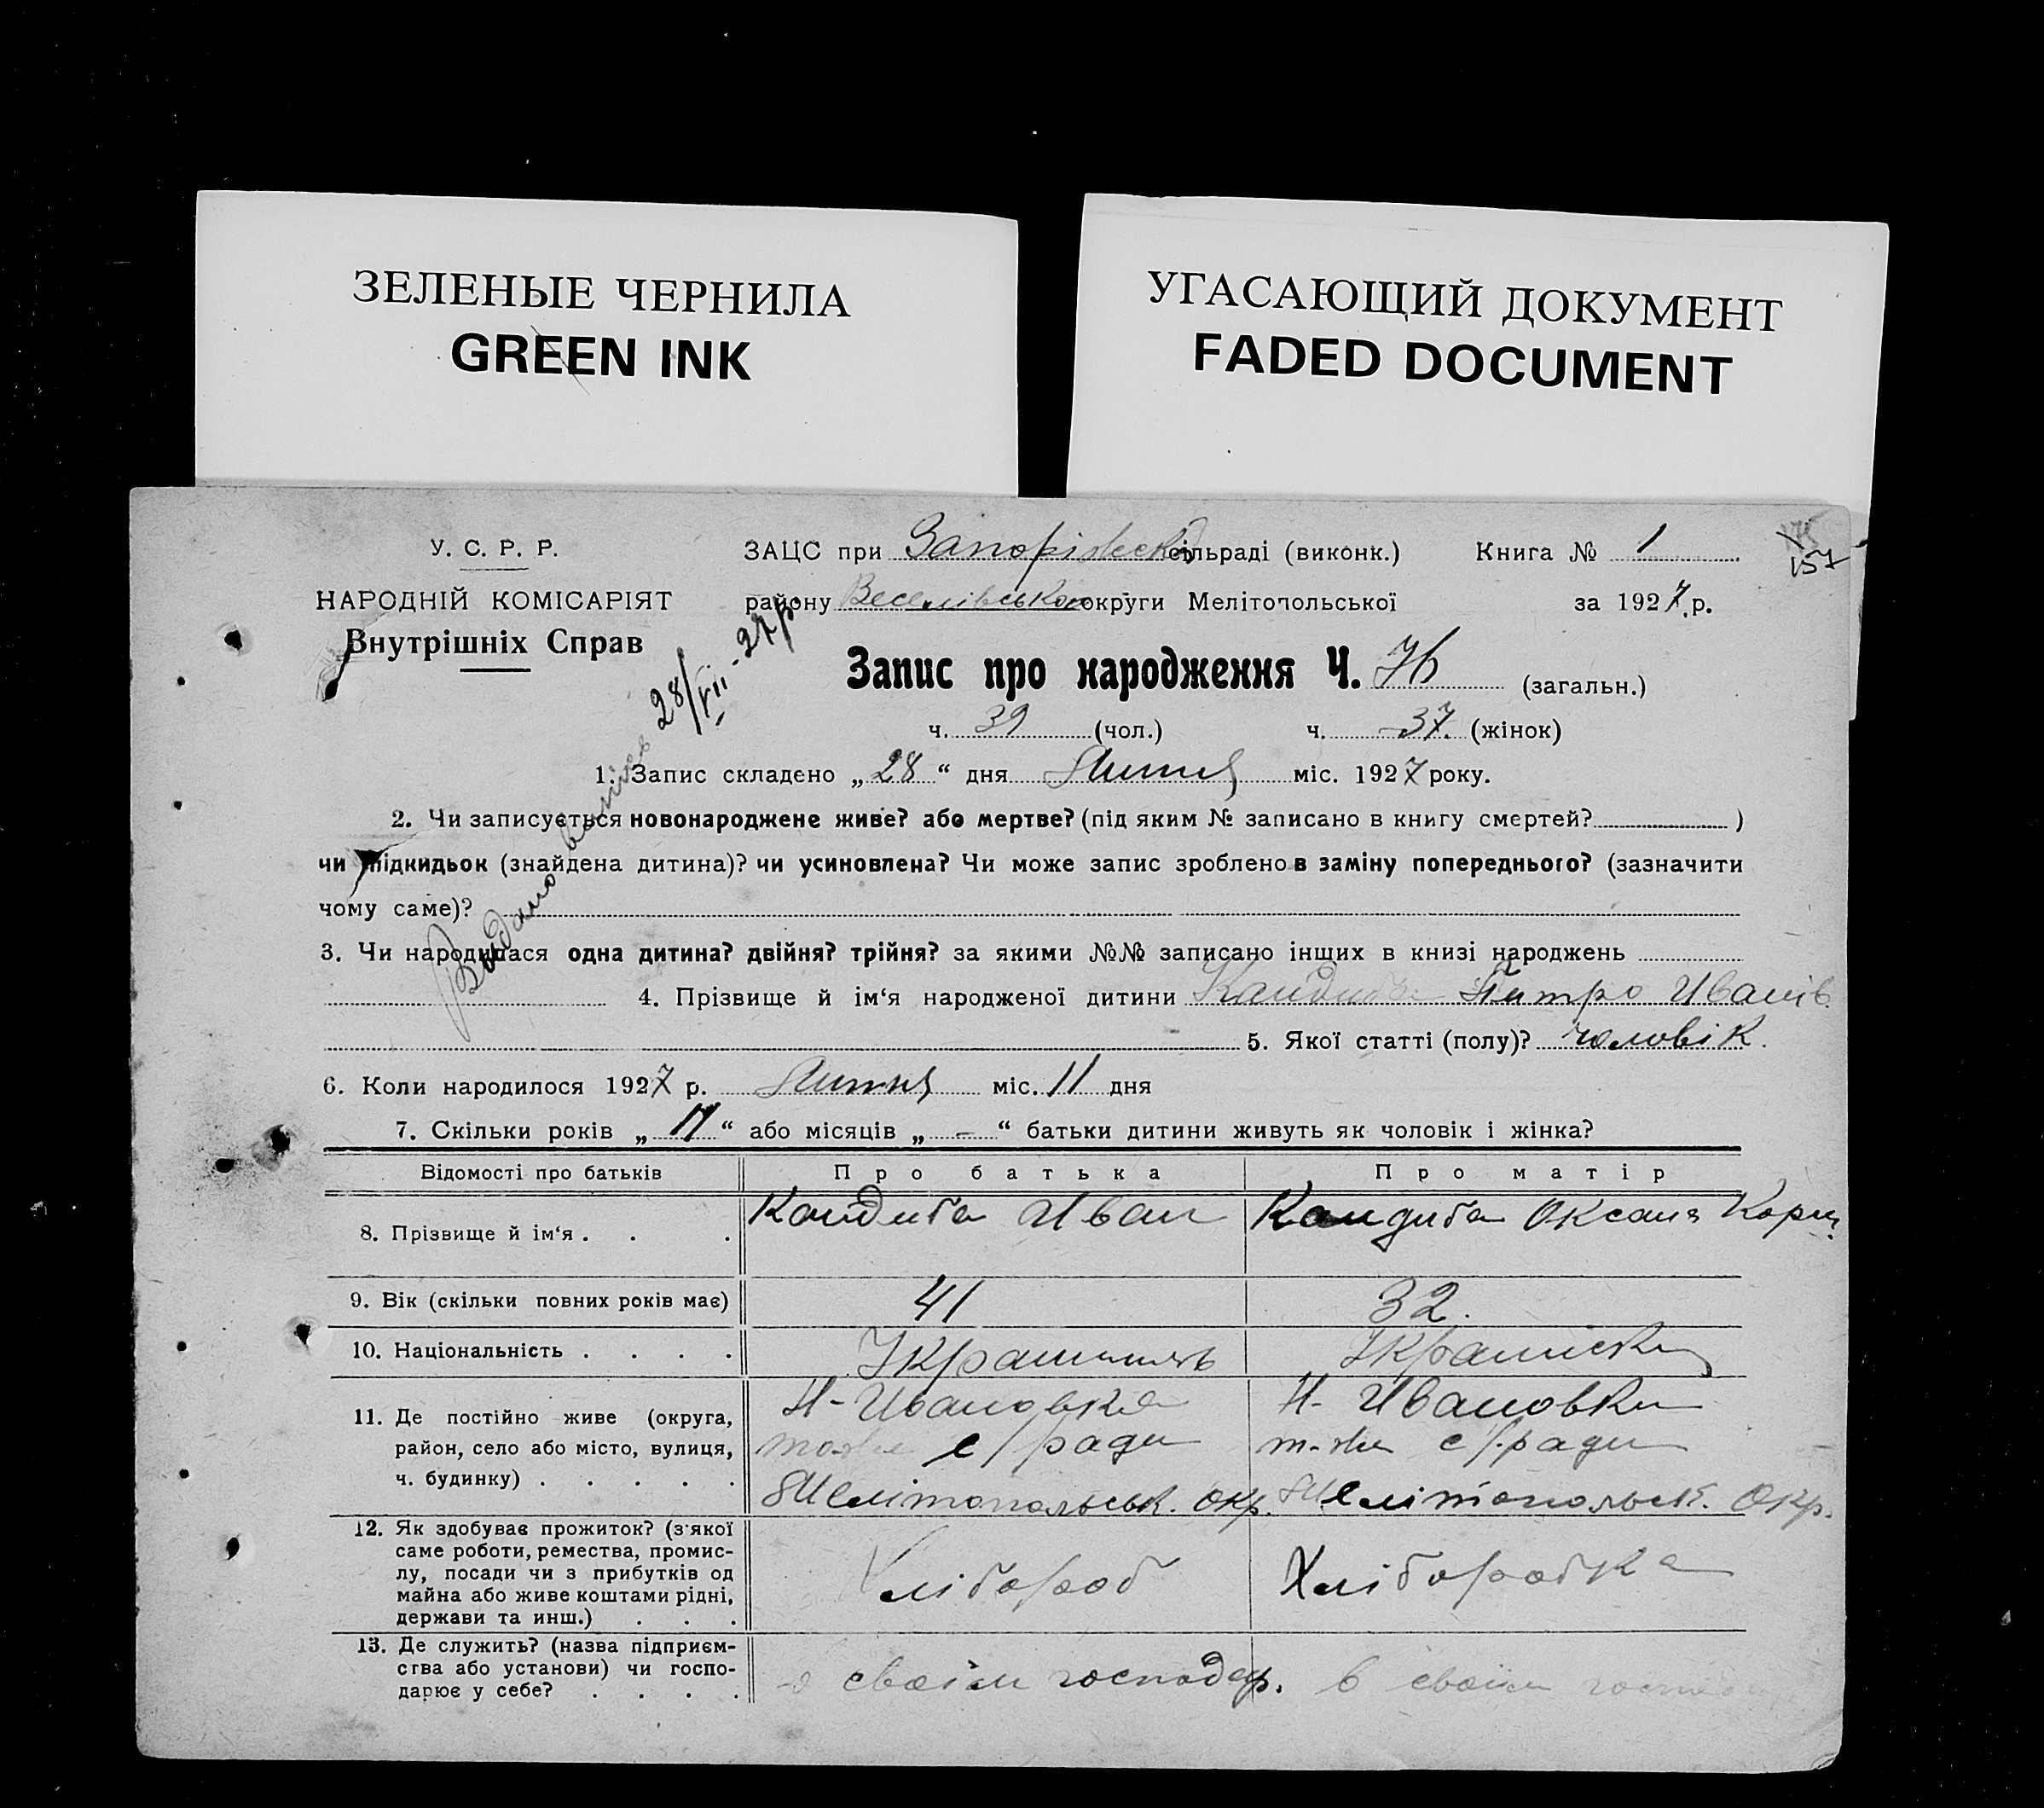 ЗЕЛЕНЫЕ ЧЕРНИЛА
GREEN INK
УГАСАЮЩИЙ ДОКУМЕНТ
FADED DOCUMENT
У. С. Р. Р.
НАРОДНІЙ КОМІСАРІЯТ
Внутрішніх Справ
ЗАЦС при сільраді (виконк.) Книга № 1
157
району Веселівської округи Мелітопольської за 1927 р.
Запис про народження Ч. 76 (загальн.)
ч. 39 (чол.) ч. 37. (жінок)
Видано 28/VII-27р.
1. Запис складено „28“ дня Липня міс. 1927 року.
2. Чи записується новонароджене живе? або мертве? (під яким № записано в книгу смертей? )
чи підкидьок (знайдена дитина)? чи усиновлена? Чи може запис зроблено в заміну попереднього? (зазначити
чому саме)?
3. Чи народилася одна дитина? двійня? трійня? за якими №№ записано інших в книзі народжень
4. Прізвище й ім‘я народженої дитини Кандиба Петро Иванів.
5. Якої статті (полу)? чоловік.
6. Коли народилося 1927 р. Липня міс. 11 дня
7. Скільки років „11“ або місяців „-“ батьки дитини живуть як чоловік і жінка?
Відомості про батьків Про батька Про матір
8. Прізвище й ім‘я . . . Кандиба Иван Кандиба Оксана
9. Вік (скільки повних років має) 41 32.
10. Національність . . . . Українець Українська
11. Де постійно живе (округа, Н-Ивановка Н. Ивановка
район, село або місто, вулиця, тоже с/ради т-же с/ради
ч. будинку) . . . . . Мелітопольськ. Окр. Мелітопольськ. Окр.
12. Як здобуває прожиток? (з'якої
саме роботи, ремества, промис-
лу, посади чи з прибутків од Хлібороб Хліборобка
майна або живе коштами рідні,
держави та инш.) . . .
13. Де служить? (назва підприєм-
ства або установи) чи госпо- в своїм господар. в своїм
дарює у себе? . . . .